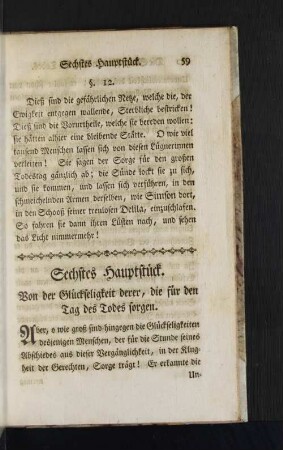 Sechstes Hauptstück. 59
§. 12.
Dieß sind die gefährlichen Netze, welche die, der
Ewigkeit entgegen wallende, Sterbliche bestricken!
Dieß sind die Vorurtheile, welche sie bereden wollen:
sie hätten allhier eine bleibende Stätte. O wie viel
tausend Menschen lassen sich von diesen Lügnerinnen
verleiten! Sie sagen der Sorge für den großen
Todestag gänzlich ab; die Sünde lockt sie zu sich,
und sie kommen, und lassen sich verführen, in den
schmeichelnden Armen derselben, wie Simson dort,
in den Schooß seiner treulosen Delila, einzuschlafen.
So fahren sie dann ihren Lüsten nach, und sehen
das Licht nimmermehr!
Sechstes Hauptstück.
Von der Glückseligkeit derer, die für den
Tag des Todes sorgen.
Aber, o wie groß sind hingegen die Glückseligkeiten
desjenigen Menschen, der für die Stunde seines
Abschiedes aus dieser Vergänglichkeit, in der Klug-
heit der Gerechten, Sorge trägt! Er erkannte die
Un-